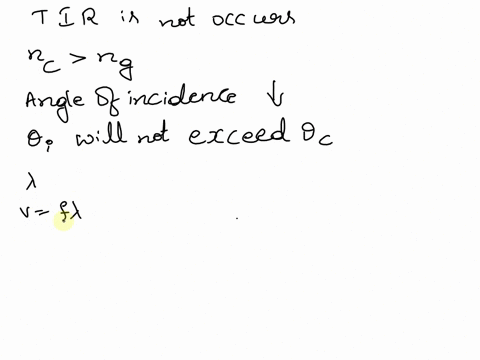 TIR is not occurs
n_c > n_g
Angle of incidence ↓
θ_i will not exceed θ_c
λ
v = fλ